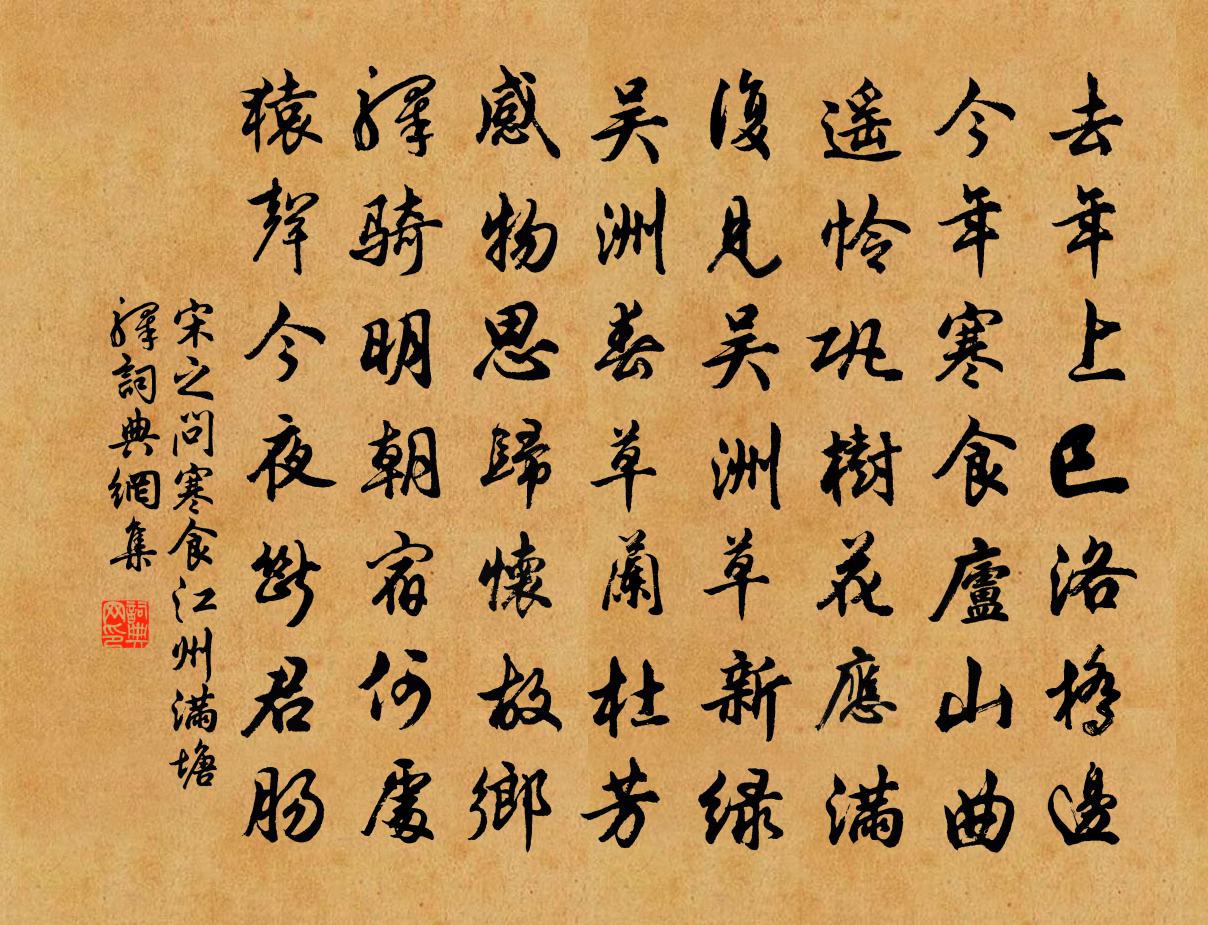 去年上巳洛橋邊
今年寒食廬山曲
遥憐巩樹花應滿
復見吴洲草新緑
吴洲春草蘭杜芳
感物思歸懷故鄉
驛騎明朝宿何處
猿聲今夜斷君腸
宋之問寒食江州滿塘
驛詞典網集
詞典网印